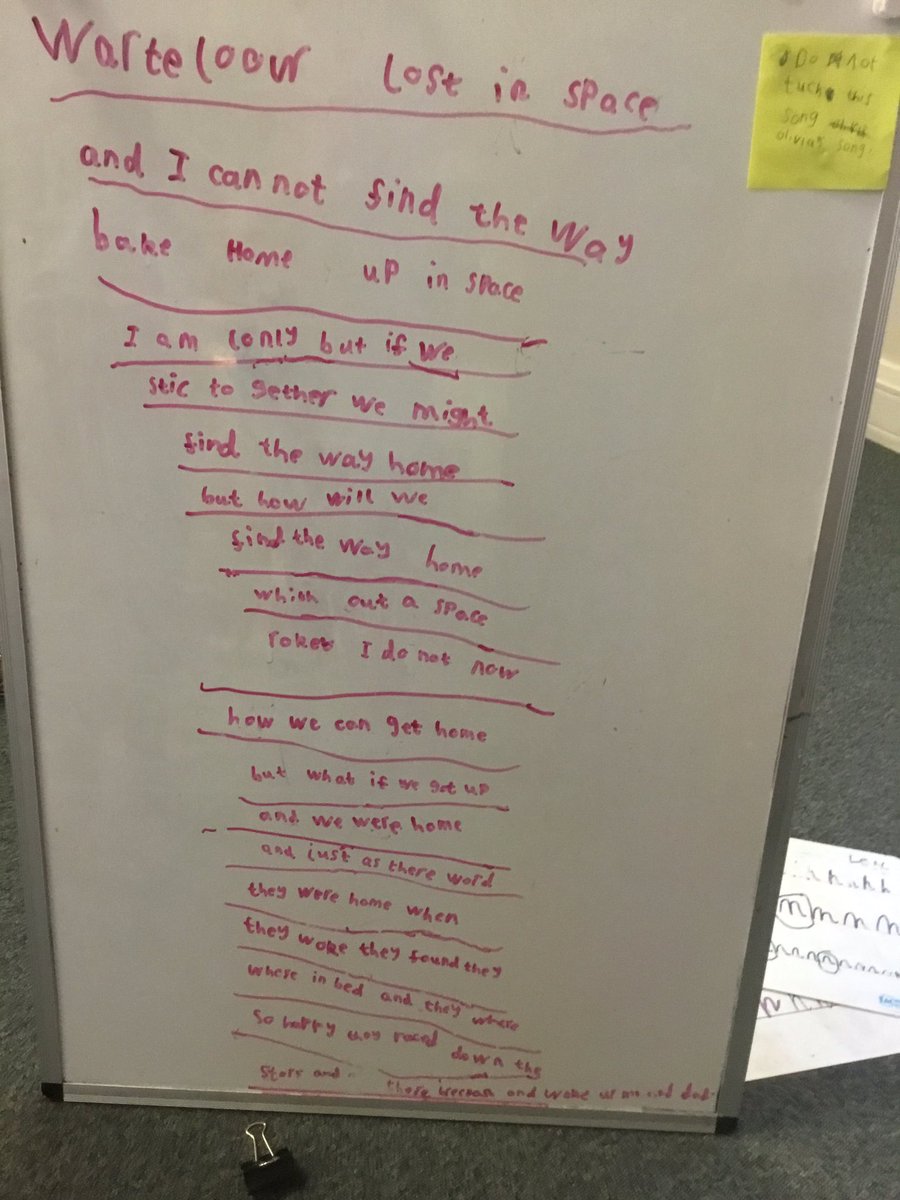 Warteloow Lost in space
and I cannot find the way
bake Home up in space
I am lonly but if we
stic to gether we might
find the way home
but how will we
find the way home
which out a space
roket I do not now
how we can get home
but what if we got up
and we were home
and just as there word
they were home when
they woke they found they
where in bed and they where
So happy they raced down the
Stors and there and woke up mum and dad
Do Not
tuch this
song
olivias song.